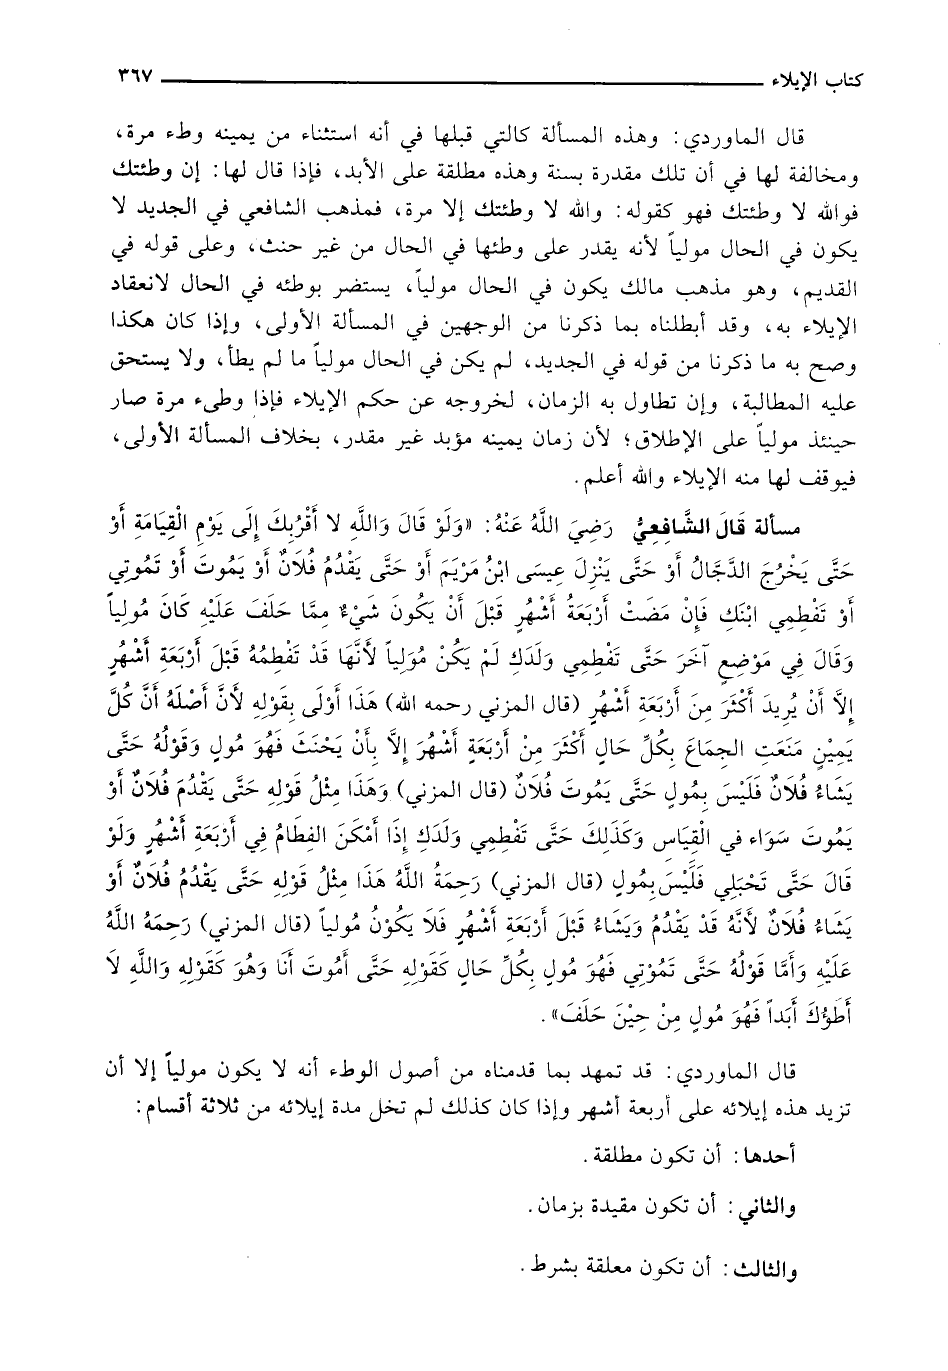 كتاب الإيلاء ٣٦٧
قال الماوردي: وهذه المسألة كالتي قبلها في أنه استثناء من يمينه وطء مرة،
ومخالفة لها في أن تلك مقدرة بسنة وهذه مطلقة على الأبد، فإذا قال لها: إن وطئتك
فوالله لا وطئتك فهو كقوله: والله لا وطئتك إلا مرة، فمذهب الشافعي في الجديد لا
يكون في الحال مولياً لأنه يقدر على وطئها في الحال من غير حنث، وعلى قوله في
القديم، وهو مذهب مالك يكون في الحال مولياً، يستضر بوطئه في الحال لانعقاد
الإيلاء به، وقد أبطلناه بما ذكرنا من الوجهين في المسألة الأولى، وإذا كان هكذا
وصح به ما ذكرنا من قوله في الجديد، لم يكن في الحال مولياً ما لم يطأ، ولا يستحق
عليه المطالبة، وإن تطاول به الزمان، لخروجه عن حكم الإيلاء فإذا وطىء مرة صار
حينئذ مولياً على الإطلاق؛ لأن زمان يمينه مؤبد غير مقدر، بخلاف المسألة الأولى،
فيوقف لها منه الإيلاء والله أعلم.
مسألة قَالَ الشَّافِعِيُّ رَضِيَ اللَّهُ عَنْهُ: «وَلَوْ قَالَ وَاللَّهِ لا أَقْرَبُكِ إِلَى يَوْمِ الْقِيَامَةِ أَوْ
حَتَّى يَخْرُجَ الدَّجَّالُ أَوْ حَتَّى يَنْزِلَ عِيسَى ابْنُ مَرْيَمَ أَوْ حَتَّى يَقْدُمَ فُلَانٌ أَوْ يَمُوتَ أَوْ تَمُوتِي
أَوْ تَفْطِمِي ابْنَكِ فَإِنْ مَضَتْ أَرْبَعَةُ أَشْهُرٍ قَبْلَ أَنْ يَكُونَ شَيْءٌ مِمَّا حَلَفَ عَلَيْهِ كَانَ مُولِياً
وَقَالَ فِي مَوْضِعٍ آخَرَ حَتَّى تَفْطِمِي وَلَدَكِ لَمْ يَكُنْ مُولِياً لأَنَّهَا قَدْ تَفْطِمُهُ قَبْلَ أَرْبَعَةِ أَشْهُرٍ
إِلَّا أَنْ يُرِيدَ أَكْثَرَ مِنَ أَرْبَعَةِ أَشْهُرٍ (قال المزني رحمه الله) هَذَا أَوْلَى بِقَوْلِهِ لأَنَّ أَصْلَهُ أَنَّ كُلَّ
يَمِيْنٍ مَنَعَتِ الجِمَاعَ بِكُلِّ حَالٍ أَكْثَرَ مِنْ أَرْبَعَةِ أَشْهُرَ إِلَّا بِأَنْ يَحْنَثَ فَهُوَ مُولٍ وَقَوْلُهُ حَتَّى
يَشَاءُ فُلَانٌ فَلَيْسَ بِمُولٍ حَتَّى يَمُوتَ فُلَانٌ (قال المزني) وَهَذَا مِثْلُ قَوْلِهِ حَتَّى يَقْدُمَ فُلَانٌ أَوْ
يَمُوتَ سَوَاء في الْقِيَاسِ وَكَذَلِكَ حَتَّى تَفْطِمِي وَلَدَكِ إِذَا أَمْكَنَ الفِطَامُ فِي أَرْبَعَةِ أَشْهُرٍ وَلَوْ
قَالَ حَتَّى تَحْبَلِي فَلَيْسَ بِمُولٍ (قال المزني) رَحِمَهُ اللَّهُ هَذَا مِثْلُ قَوْلِهِ حَتَّى يَقْدُمُ فُلَانٌ أَوْ
يَشَاءُ فُلَانٌ لأَنَّهُ قَدْ يَقْدُمُ وَيَشَاءُ قَبْلَ أَرْبَعَةِ أَشْهُرٍ فَلَا يَكُوْنُ مُولياً (قال المزني) رَحِمَهُ اللَّهُ
عَلَيْهِ وَأَمَّا قَوْلُهُ حَتَّى تَمُوْتِي فَهُوَ مُولٍ بِكُلِّ حَالٍ كَقَوْلِهِ حَتَّى أَمُوتَ أَنَا وَهُوَ كَقَوْلِهِ وَاللَّهِ لَا
أَطَؤُكَ أَبَداً فَهُوَ مُولٍ مِنْ حِيْنَ حَلَفَ».
قال الماوردي: قد تمهد بما قدمناه من أصول الوطء أنه لا يكون مولياً إلا أن
تزيد هذه إيلائه على أربعة أشهر وإذا كان كذلك لم تخل مدة إيلائه من ثلاثة أقسام:
أحدها: أن تكون مطلقة.
والثاني: أن تكون مقيدة بزمان.
والثالث: أن تكون معلقة بشرط.